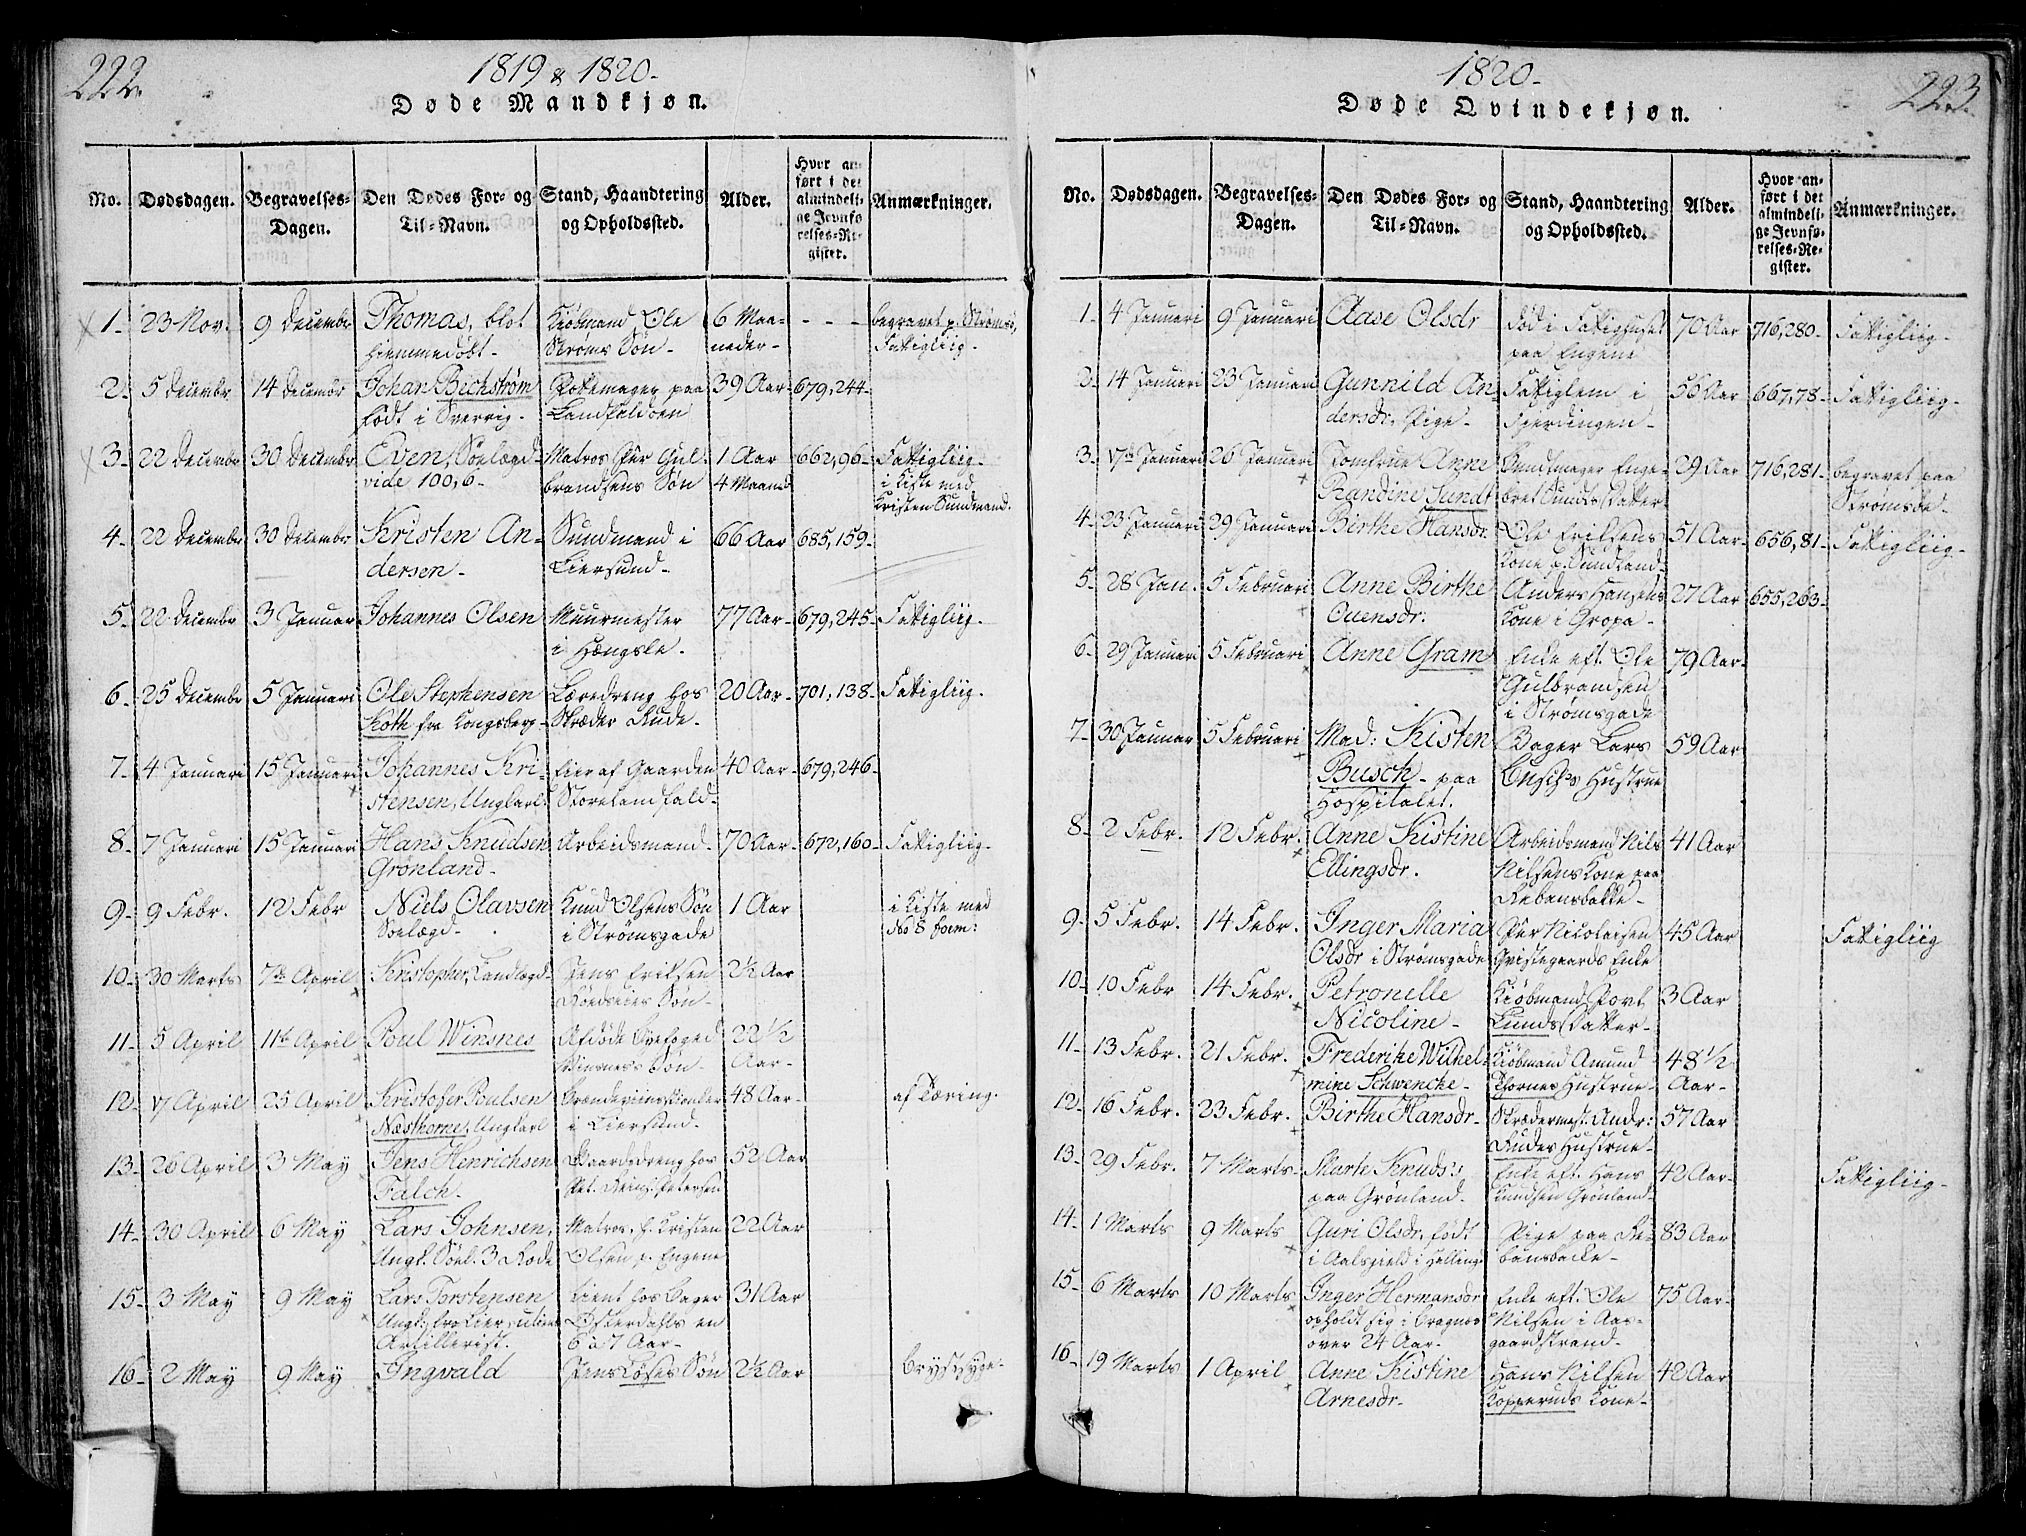 222.
1819 & 1820.
Døde Mandkjøn.
No. Dødsdagen. Begravelses-Dagen. Den Dødes For- og Til-Navn. Stand, Haandtering og Opholdssted. Alder. Hvor anført i det almindelige Jevnførelses-Register. Anmærkninger.
1. 23 Nov. 9 Decembr Thomas, blot hiemmedøbt. Kiøbmand Ole Strøms Søn. 6 Maaneder. - - - begravet p. Strømsø, Fattigliig.
2. 5 Decembr 14 Decembr Johan Bechstrøm født i Sverrig. Pottemager paa Landfaldøen 39 Aar 679,244.
3. 22 Decembr 30 Decembr Even, Søelægd vide 100,6. Matros Per Gulbrandsens Søn 1 Aar 4 Maaned 662,96. Fattigliig. i Kiste med Kristen Sundmand.
4. 22 Decembr 30 Decembr Kristen Andersen. Sundmand i Liersund. 66 Aar 685,159.
5. 22 Decembr 3 Januar Johannes Olsen Muurmester i Hængsle. 77 Aar 679,245. Fattigliig.
6. 25 Decembr 5 Januari Ole Stephensen Koth fra Kongsberg. Læredreng hos Skræder Rude. 20 Aar 701,138. Fattigliig.
7. 4 Januari 15 Januari Johannes Kristensen, Ungkarl. Eier af Gaarden Storelandfald. 40 Aar 679,246.
8. 7 Januari 15 Januari Hans Knudsen Grønland. Arbeidsmand. 70 Aar 672,160. Fattigliig.
9. 9 Febr. 12 Febr Niels Olavsen Søelægd. Knud Olsens Søn i Strømsgade 1 Aar i Kiste med No 8 foem:
10. 30 Marts 7de April Kristopher, Landlægd. Jens Eriksen Søn. 2½ Aar
11. 5 April 11te April Poul Winsnes Afdøde Winsness Søn. 22 ½ Aar.
12. 7 April 25 April Kristofer Poulsen Næsthorne, Ungkarl i Liersund. 48 Aar. af Tæring.
13. 26 April 3 May Jens Henrichsen Falch. Gaardsdreng hos Petersen 52 Aar
14. 30 April 6 May Lars Johnsen, Ungk. Søel. 3 Rode Matros, h. Kristen Olsen p. Engene 22 Aar
15. 3 May 9 May Lars Torstensen Artillerist. Tient hos Bager Østerdahls en 6 a 7 Aar. 31 Aar
16. 2 May 9 May Ingvald Jens Søn 2½ Aar Brystsyge.
223.
1820.
Døde Qvindekjøn.
No. Dødsdagen. Begravelses-Dagen. Den Dødes For- og Til-Navn. Stand, Haandtering og Opholdssted. Alder. Hvor anført i det almindelige Jevnførelses-Register. Anmærkninger.
1. 4 Januari 9 Januari Aase Olsdr Død i Fattighuset paa Engene 70 Aar 716,280. Fattigliig.
2. 14 Januari 23 Januari Gunnild Andersdr, Pige. Fattiglem i 56 Aar 667,78. Fattigliig.
3. 17de Januari 26 Januari Jomfrue Anne Randine Sundt Bundtmager Engebret Sundts Datter 29 Aar 716,281. begravet paa Strømsøe.
4. 23 Januari 29 Januari Birthe Hansdr. Ole Eriksens Kone p. Sundland. 51 Aar 656,81. Fattigliig.
5. 28 Jan. 5 Februari Anne Birthe Ouensdr. Anders Hansens Kone i Gropa. 27 Aar 655,263.
6. 29 Januari 5 Februari Anne Gram Enke eft. Ole Gulbrandsen i Strømsgade 79 Aar.
7. 30 Januar 5 Februari Mad: Kisten Busch. paa Hospitalet. Bager Lars Busch's Hustrue 59 Aar
8. 2 Febr. 12 Febr. Anne Kistine Ellingsdr. Arbeidsmand Nils Nilsens Kone paa Rebansbakke. 41 Aar
9. 5 Febr. 14 Febr. Inger Maria Olsdr i Strømsgade Per Nicolaisen Qvistegaards Enke 45 Aar Fattigliig
10. 10 Febr 14 Febr. Petronelle Nicoline. Kiøbmand Povl Lunds Datter. 3 Aar
11. 13 Febr. 21 Febr. Frederikke Wilhelmine Schwencke. Kiøbmand Amund Thornes Hustrue. 48 ½ Aar.
12. 16 Febr. 23 Febr. Birthe Hansdr. Skrædermest. Andr: Rudes Hustrue. 57 Aar
13. 29 Febr. 7 Marts. Marte Knuds: paa Grønland. Enke eft. Hans Knudsen Grønland. 42 Aar. Fattigliig.
14. 1 Marts 9 Marts Guri Olsdr, født i Aalsfield i Halling. Pige paa Rebansbacke. 83 Aar
15. 6 Marts 10 Marts Inger Hermansdr opholdt sig i Bragnæs over 24 Aar. Enke eft. Ole Nilsen i Aasgaardstrand. 75 Aar.
16. 19 Marts 1 April Anne Kistine Arnesdr. Hans Nilsen Kopperuds Kone. 42 Aar